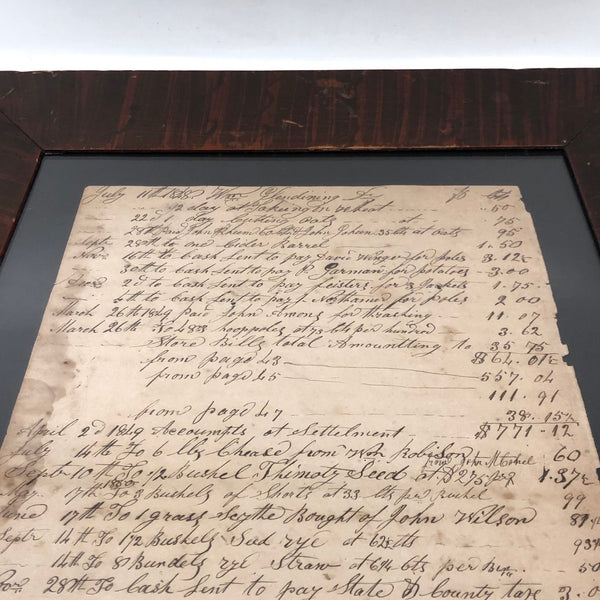 July 11th 1848 Wm Glendining Dr $ Cts
½ day at raking in wheat .50
22d 1 day Cradling oats at 75
John Rheem John 35 Cts at oats 95
Septr 28th to one Cider Barrel 1.50
Novr 16th to Cash sent to pay David for poles 3.12½
30th to Cash sent to pay R Garman for potatoes 3.00
Decr 2d to Cash sent to pay Leislers for 3 1.75
6th to Cash sent to pay for poles 2 00
March 26th 1849 paid John Amons for thrashing 11.07
March 26th To 483 hooppoles at 75 cts per hundred 3.62
Store Bills total Amountting to 35.75
from page 43 $64.01½
from page 45 557.04
111.91
from page 47 38.15½
April 2d 1849 Accounts at Settelment $771.12
July 14th To 6 lbs Chease from Wm Robison 60
Septr 10th To ½ Bushel Thimoty Seed from John at $2.75 per 1.37½
May 17th 1850 To 3 Bushels of Shorts at 33 cts per Bushel 99
June 17th To 1 grass Scythe Bought of John Wilson 87½
Septr 14th To 1½ Bushels Seed rye at 62½ cts 93¾
14th To 8 Bundels rye Straw at 6¼ cts per Bun 50
Novr 28th To Cash sent to pay State & County taxe 3.0